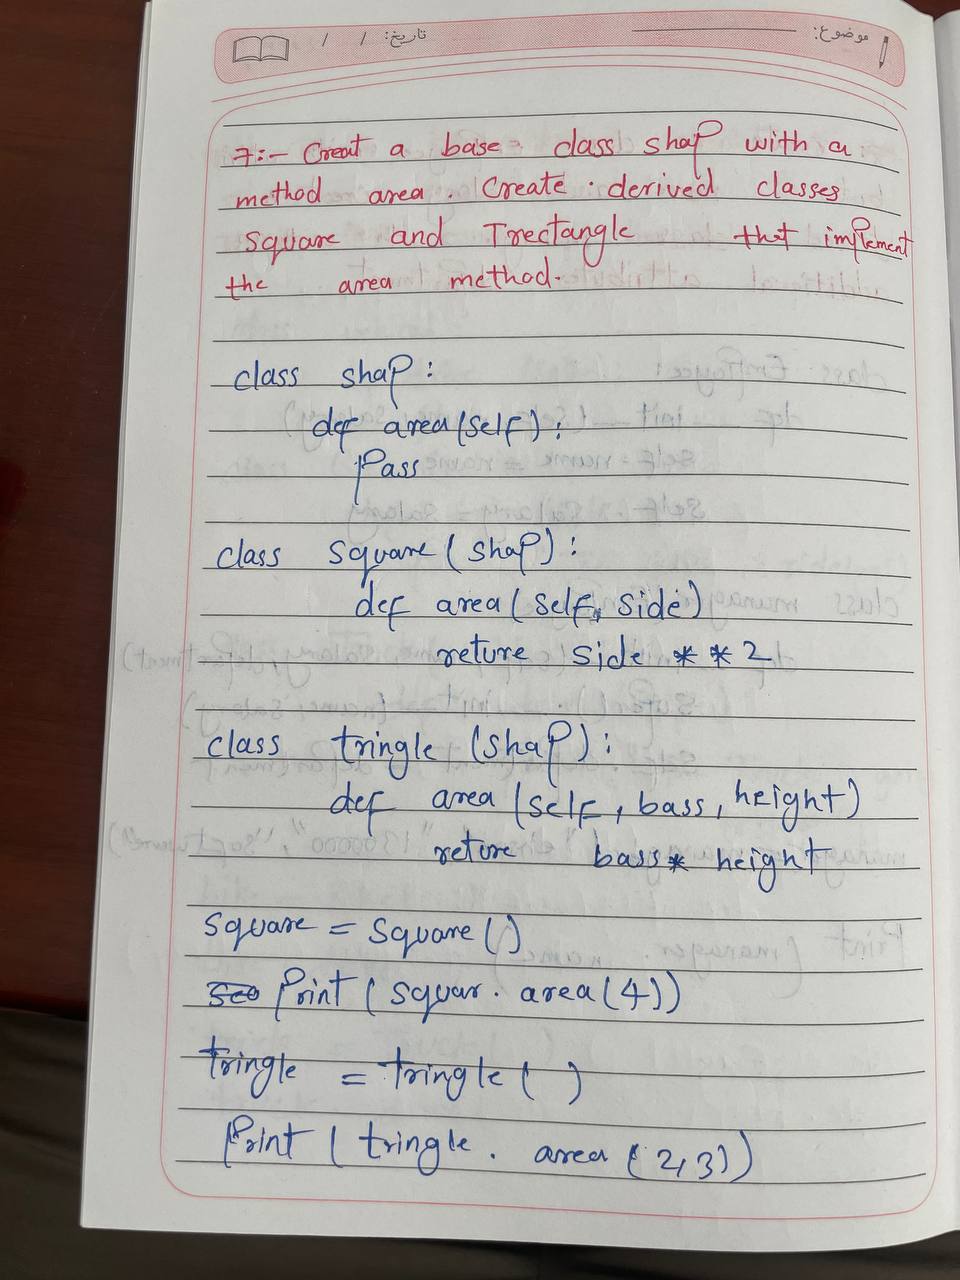 موضوع:
تاریخ: / /
7:- Creat a base class shap with a
method area. Create derived classes
square and Trectangle that implement
the area method.
class shap:
def area(self):
Pass
class square(shap):
def area(self, side)
reture side **2
class tringle (shap):
def area(self, bass, height)
reture bass* height
square = square()
Print(squar. area(4))
tringle = tringle( )
Print( tringle. area(2,3))